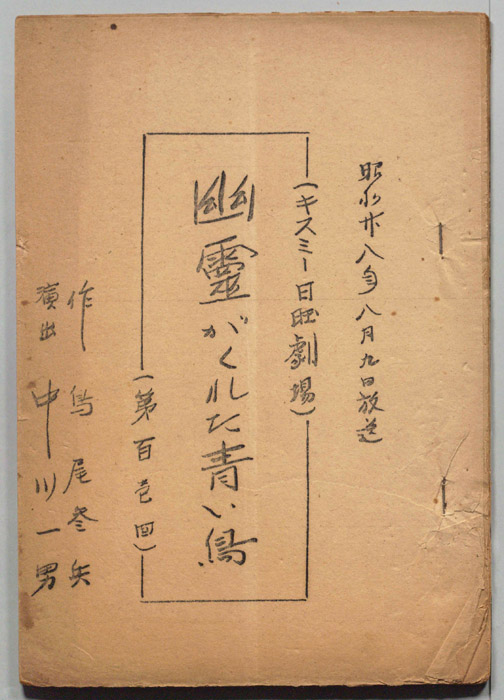 昭和廿八年八月九日放送
(キスミー日曜劇場)
幽靈がくれた青い鳥
(第百壱回)
作 鳥尾参矢
演出 中川一男